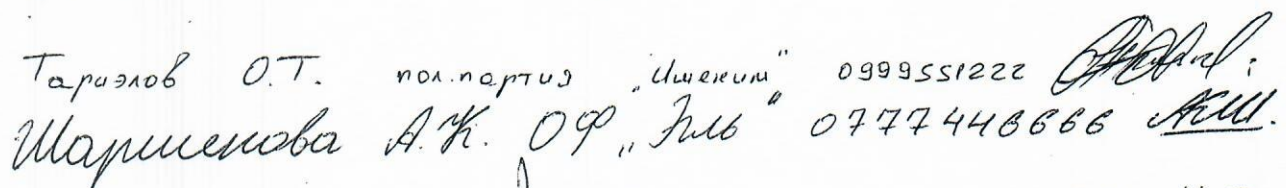 Тариэлов О.Т. пол.партия "Ишеним" 0999551222
Шаршенова А.К. ОФ "Эль" 0777446666 АКШ.